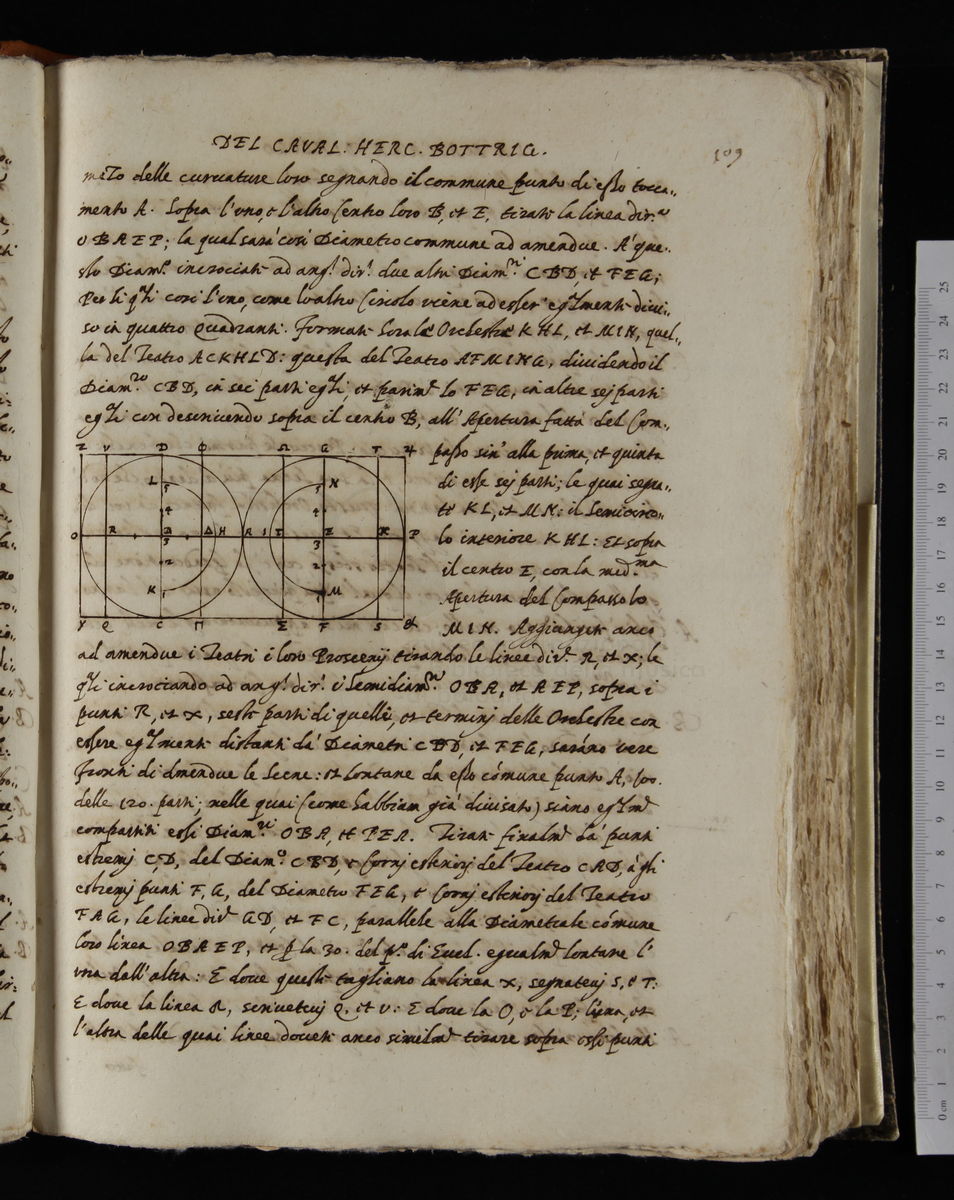 DEL CAVAL. HERC. BOTTRIG.
109
mezo delle curuature loro segnando il commune punto di esso tocca„
mento A. Sopra l'uno, e l'altro Centro loro B, et E, tirate la linea dir.ª
O B A E P; la qual sarà così Diametro commune ad amendue. A' que„
sto Diam.º incrociate ad ang.i dir.i due altri Diam.ri CBD, et FEG;
Per li q.li così l'uno, come l'altro Circolo viene ad esser' eg.lmente diui„
so in quattro Quadranti. Formate Sora le Orchestre KHL, et MIN, quel„
la del Teatro ACKHLD: questa del Teatro AFMING, diuidendo il
Diam.ro CBD, in sei parti eg.li, et parim.e lo FEG, in altre sej parti
eg.li con descriuendo sopra il centro B, all' Apertura fatta del Com„
Z V D Φ Ω G T
L N
5 5
4 4
O R B Δ H A I E P
3 3
2 2
K 1 1 M
Y Q C Π Σ F S &
passo sin' alla prima, et quinta
di esse sej parti; le quai segna„
te KL, et MN: il Semicirco„
lo interiore KHL: Et sopra
il centro E, con la med.ma
Apertura del Compasso lo
MIN. Aggiungete anco
ad amendue i Teatri i loro Proscenij tirando le linee dir.e R, et X; le
q.li incrociando ad ang.i dir.i i Semidiam.ri OBA, et AEP, sopra i
punti R, et X, seste parti di quelli, et terminj delle Orchestre con
essere eg.lmente distanti da' Diametri CBD, et FEG, sarano vere
fronti di amendue le Scene: et lontane da esso cómune punto A, 100.
delle 120. parti; nelle quai (come habbiam già diuisato) siano eg.lm.e
compartiti essi Diam.ri OBA, et PEA. Tirate finalm.e da' punti
estremj C, D, del Diam.º CBD, e Cornj esteriorj del Teatro CAD, à gli
estremj punti F, G, del Diametro FEG, e Cornj esteriorj del Teatro
FAG, le linee dir.e GD, et FC, parallele alla Diametrale cómune
loro linea OBAEP, et p la 30. del p.º di Eucl. egualm.e lontane l'
vna dall'altra: E doue queste tagliano la linea X, segnateuj S, e T:
E doue la linea R, scriuetuj Q, et V: E doue la O, e la P; l'vna, et
l'altra delle quai linee douete anco similm.e tirare sopra essi punti